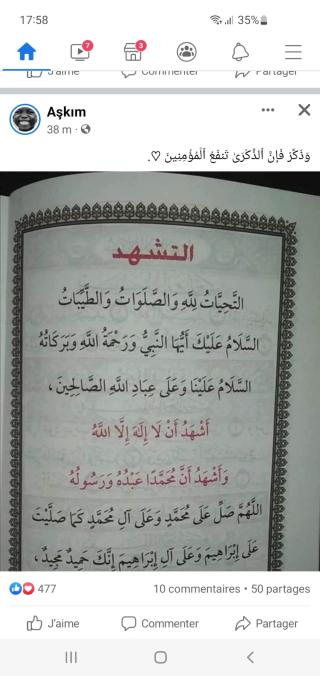 17:58
35%
7
3
J'aime
Commenter
Partager
Aşkım
38 m
وَذَكِّرْ فَإِنَّ ٱلذِّكْرَىٰ تَنفَعُ ٱلْمُؤْمِنِينَ ♡.
التشهد
التَّحِيَّاتُ لِلَّهِ وَالصَّلَوَاتُ وَالطَّيِّبَاتُ
السَّلَامُ عَلَيْكَ أَيُّهَا النَّبِيُّ وَرَحْمَةُ اللَّهِ وَبَرَكَاتُهُ
السَّلَامُ عَلَيْنَا وَعَلَى عِبَادِ اللَّهِ الصَّالِحِينَ ،
أَشْهَدُ أَنْ لَا إِلَهَ إِلَّا اللَّهُ
وَأَشْهَدُ أَنَّ مُحَمَّدًا عَبْدُهُ وَرَسُولُهُ
اللَّهُمَّ صَلِّ عَلَى مُحَمَّدٍ وَعَلَى آلِ مُحَمَّدٍ كَمَا صَلَّيْتَ
عَلَى إِبْرَاهِيمَ وَعَلَى آلِ إِبْرَاهِيمَ إِنَّكَ حَمِيدٌ مَجِيدٌ ،
477
10 commentaires • 50 partages
J'aime
Commenter
Partager